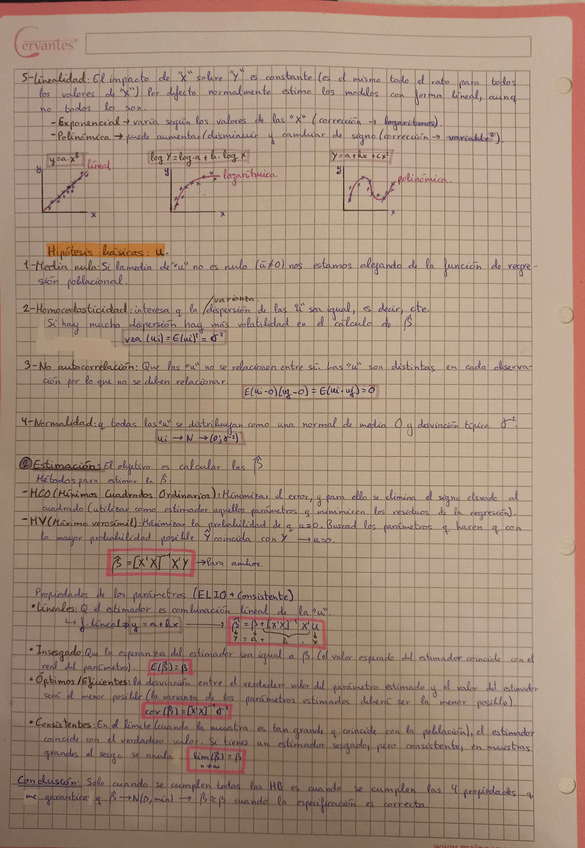 Cervantes
5-Linealidad: El impacto de "X" sobre "Y" es constante (es el mismo todo el rato para todos
los valores de "X"). Por defecto normalmente estimo los modelos con forma lineal, aunq
no todos lo son.
- Exponencial → varía según los valores de las "X" (corrección → logaritmos).
- Polinómica → puede aumentar/disminuir y cambiar de signo (corrección → variable²).
y=a·x² lineal
log Y = log a + b. log X logarítmica.
Y = a+bx+cx² polinómica.
y x
y x
y x
Hipótesis básicas: u.
1-Media nula: Si la media de "u" no es nula (ū≠0) nos estamos alejando de la función de regre-
sión poblacional.
/varianza.
2-Homocedasticidad: interesa q la dispersión de las "u" sea igual, es decir, cte.
Si hay mucha dispersión hay más volatilidad en el cálculo de β̂
var (ui) = E(ui)² = σ²
3-No autocorrelación: Que las "u" no se relacionen entre sí. Las "u" son distintas en cada observa-
ción por lo que no se deben relacionar.
E(ui-0)(uj-0) = E(ui·uj) = 0
4-Normalidad: q todas las "u" se distribuyan como una normal de media 0 y desviación típica σ².
ui → N → (0; σ²)
② Estimación: El objetivo es calcular las β̂
Métodos para estimar la β.
- MCO (Mínimos Cuadrados Ordinarios): Minimizar el error, y para ello se elimina el signo elevado al
cuadrado (utilizar como estimador aquellos parámetros q minimicen los residuos de la regresión).
- MV (Máximo verosímil): Maximizar la probabilidad de q u=0. Buscad los parámetros q hacen q con
la mayor probabilidad posible Ŷ coincida con Y → u=0.
β̂ = [X'X]⁻¹ X'Y → Para ambos.
Propiedades de los parámetros (ELIO + Consistente)
• Lineales: Q el estimador es combinación lineal de la "u".
↳ f. lineal ⇒ y = a+bx → β̂ = β + [X'X]⁻¹ X'u
Y = a + b X
• Insesgado: Que la esperanza del estimador sea igual a β (el valor esperado del estimador coincide con el
real del parámetro). E(β̂) = β
• Óptimos/Eficientes: la desviación entre el verdadero valor del parámetro estimado y el valor del estimador
será el menor posible (la varianza de los parámetros estimados deberá ser la menor posible).
cov (β̂) = [X'X]⁻¹ σ²
• Consistentes: En el límite (cuando la muestra es tan grande q coincide con la población), el estimador
coincide con el verdadero valor. Si tienes un estimador sesgado, pero consistente, en muestras
grandes el sesgo se anula. lim (β̂) = β
n→∞
Conclusión: Solo cuando se cumplen todas las HB es cuando se cumplen las 4 propiedades q
me garantice q β̂ → N(β, min) → β̂ ≅ β cuando la especificación es correcta.